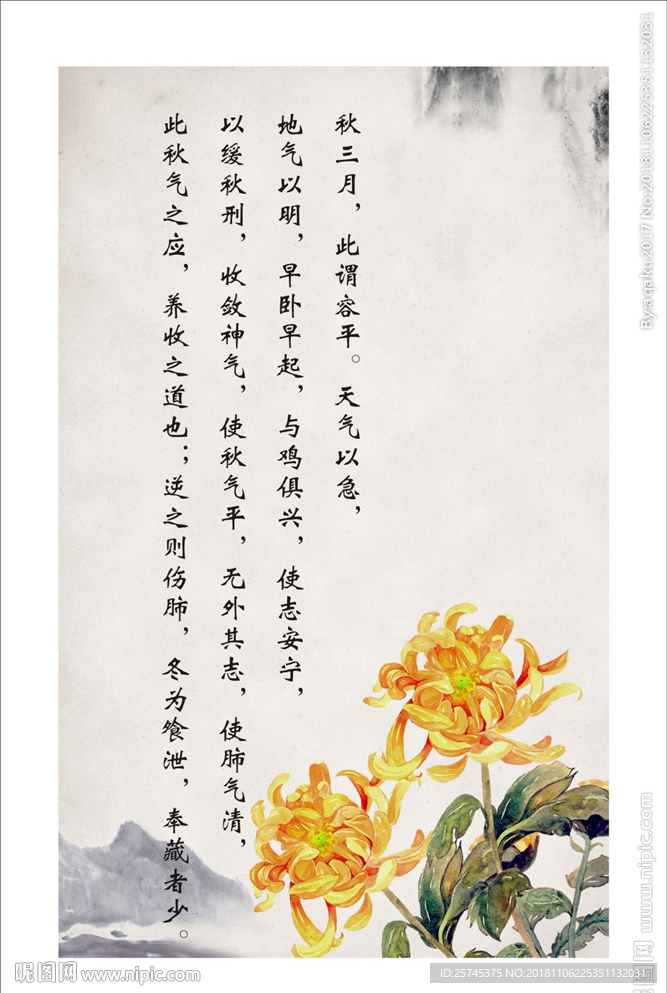 秋三月，此谓容平。天气以急，
地气以明，早卧早起，与鸡俱兴，使志安宁，
以缓秋刑，收敛神气，使秋气平，无外其志，使肺气清，
此秋气之应，养收之道也；逆之则伤肺，冬为飧泄，奉藏者少。
By:aqaku2017 No:20181106225351132031
昵图网 www.nipic.com
昵图网 www.nipic.com
ID:25745375 NO:20181106225351132031